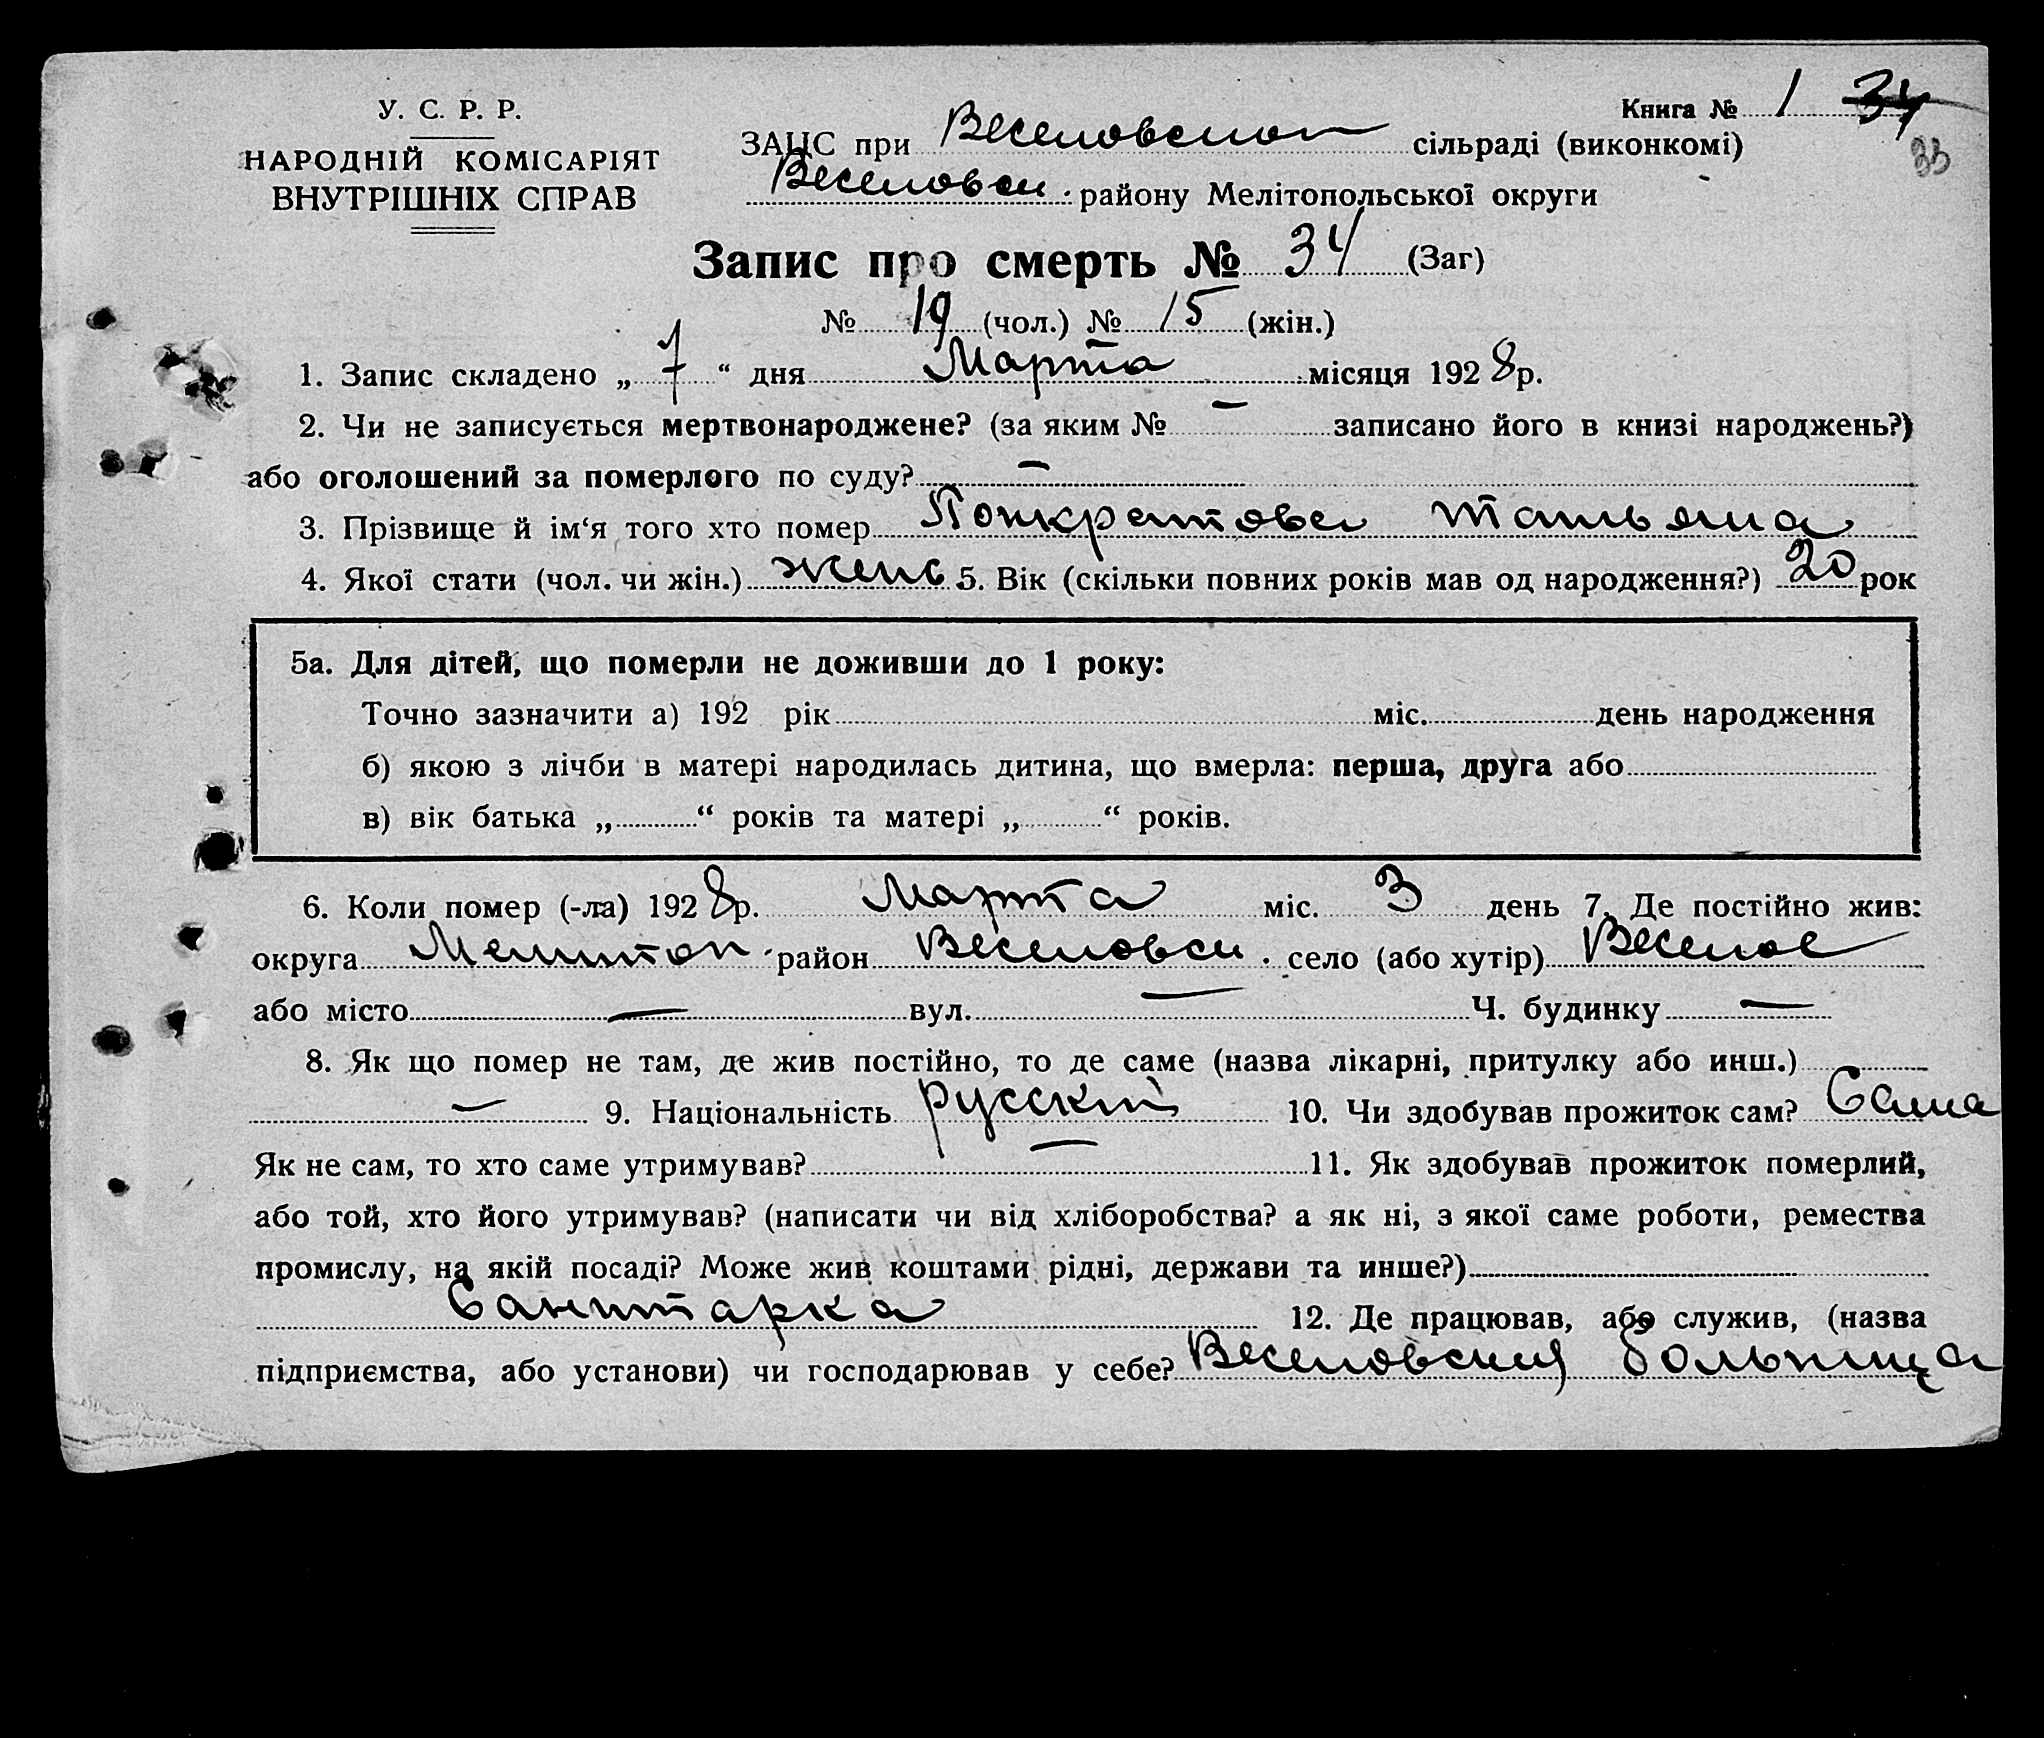 У. С. Р. Р.
НАРОДНІЙ КОМІСАРІЯТ
ВНУТРІШНІХ СПРАВ
Книга № 1 34
33
ЗАЦС при Веселовском сільраді (виконкомі)
Веселовск. району Мелітопольської округи
Запис про смерть № 34 (Заг)
№ 19 (чол.) № 15 (жін.)
1. Запис складено „ 7 “ дня Марта місяця 1928 р.
2. Чи не записується мертвонароджене? (за яким № — записано його в книзі народжень?)
або оголошений за померлого по суду? —
3. Прізвище й ім‘я того хто помер Понкратова Татьяна
4. Якої стати (чол. чи жін.) женс 5. Вік (скільки повних років мав од народження?) 20 рок
5а. Для дітей, що померли не доживши до 1 року:
Точно зазначити а) 192 рік міс. день народження
б) якою з лічби в матері народилась дитина, що вмерла: перша, друга або
в) вік батька „ “ років та матері „ “ років.
6. Коли помер (-ла) 1928 р. Марта міс. 3 день 7. Де постійно жив:
округа Мелитоп. район Веселовск. село (або хутір) Веселое
або місто — вул. — Ч. будинку —
8. Як що помер не там, де жив постійно, то де саме (назва лікарні, притулку або инш.)
— 9. Національність русский 10. Чи здобував прожиток сам? Сама
Як не сам, то хто саме утримував? — 11. Як здобував прожиток померлий,
або той, хто його утримував? (написати чи від хліборобства? а як ні, з якої саме роботи, ремества
промислу, на якій посаді? Може жив коштами рідні, держави та инше?)
Санитарка 12. Де працював, або служив, (назва
підприємства, або установи) чи господарював у себе? Веселовский больница